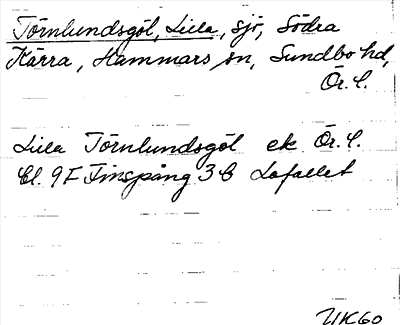 Törnlundsgöl, Lilla, sjö, Södra
Kärra, Hammars sn, Sundbo hd,
Ör. l.
Lilla Törnlundsgöl ek Ör. l.
bl. 9F Finspång 3b Lofallet
UK60